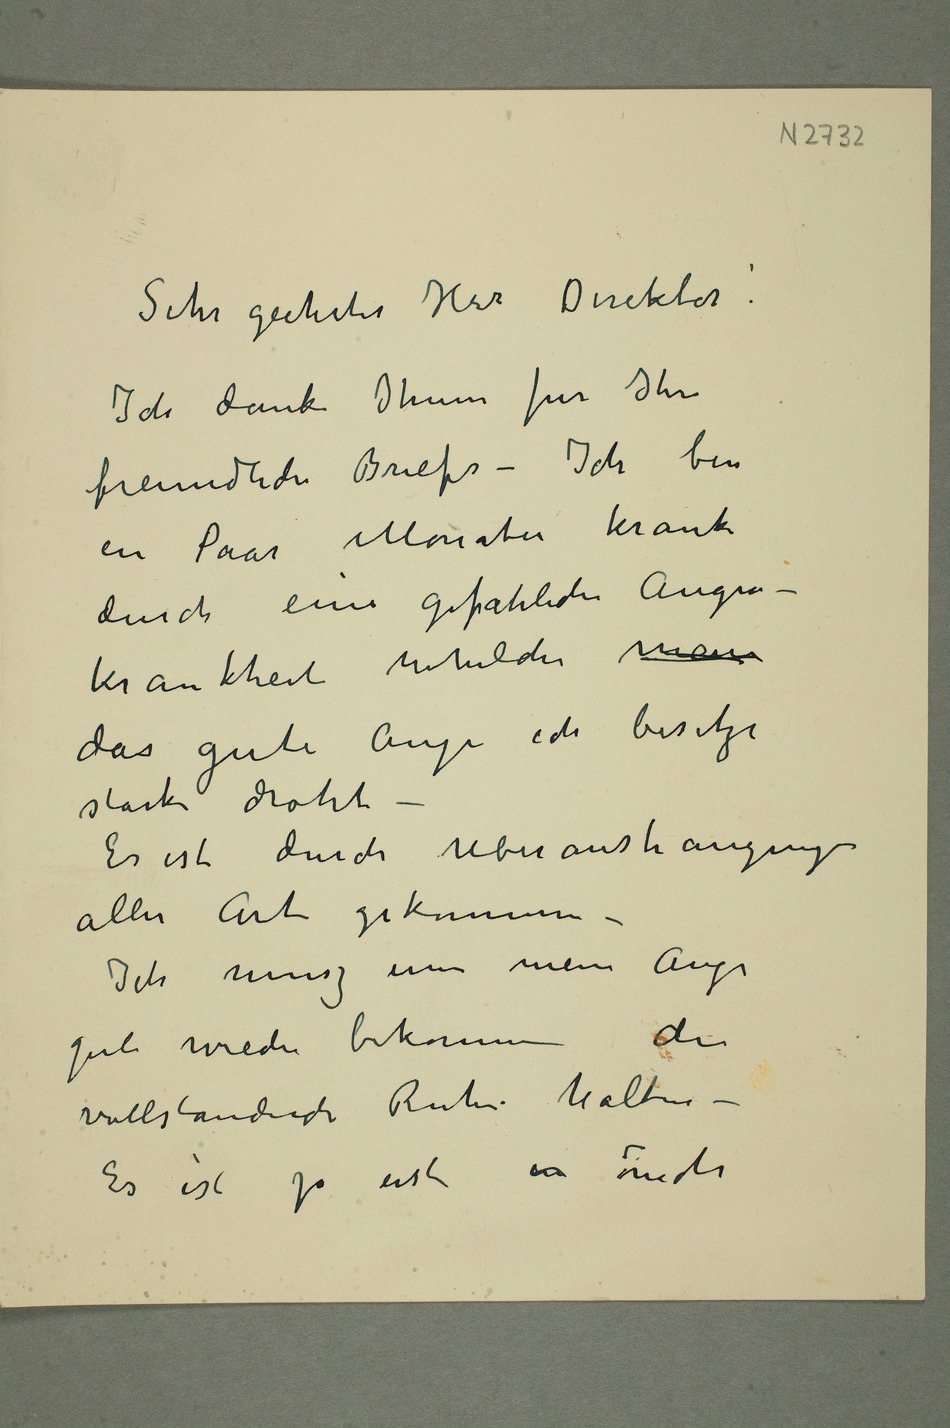 N 2732
Sehr geehrter Herr Direktor!
Ich danke Ihnen für Ihre
freundliche Briefe – Ich bin
ein Paar Monaten krank
durch eine gefahrliche Augen-
krankheit welche mein
das gute Auge ich besitze
stark droht –
Es ist durch Uberanstrangung
aller Art gekommen –
Ich musz um mein Auge
gut wieder bekommen die
vollstandide Ruhe halten –
Es ist ja erst